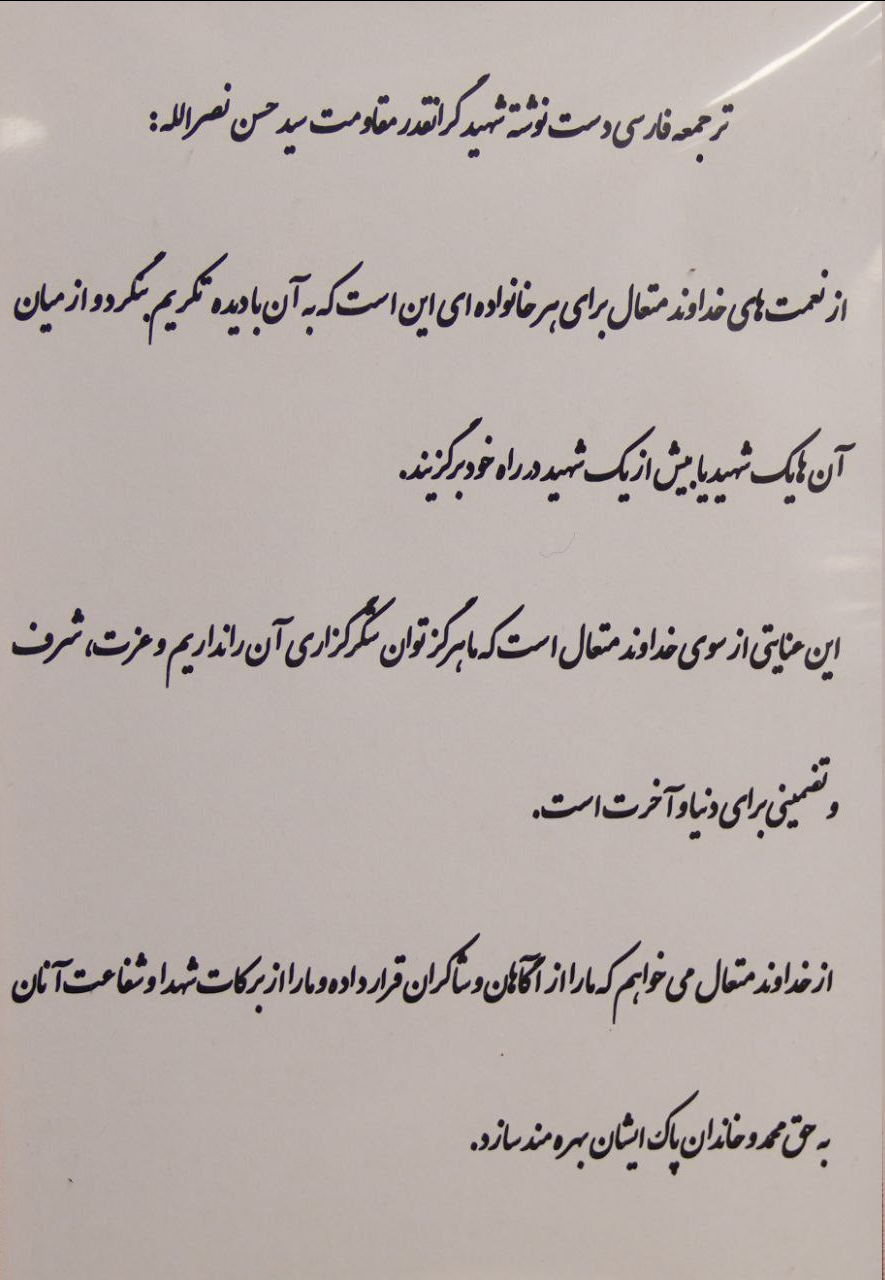 ترجمه فارسی دست نوشته شهید گرانقدر مقاومت سید حسن نصرالله:
از نعمت های خداوند متعال برای هر خانواده ای این است که به آن با دیده تکریم بنگرد و از میان
آن ها یک شهید یا بیش از یک شهید در راه خود برگزیند.
این عنایتی از سوی خداوند متعال است که ما هرگز توان شکرگزاری آن را نداریم و عزت، شرف
و تضمینی برای دنیا و آخرت است.
از خداوند متعال می خواهم که ما را از آگاهان و شاکران قرار داده و ما را از برکات شهدا و شفاعت آنان
به حق محمد و خاندان پاک ایشان بهره مند سازد.